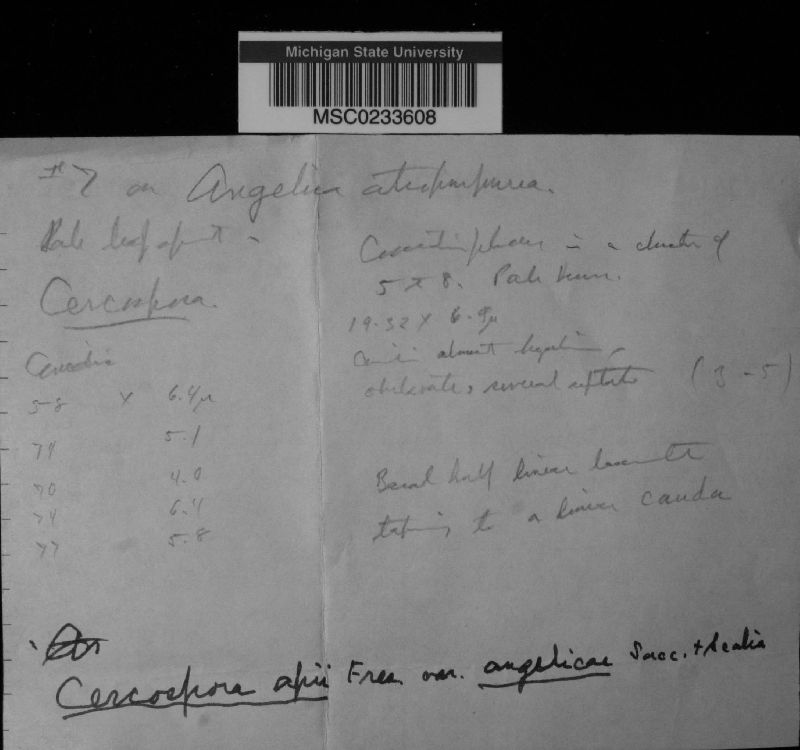 Michigan State University
MSC0233608
#7 on Angelica atropurpurea.
Pale leaf spot -
Cercospora.
Conidia
58 x 6.4µ
74 5.1
70 4.0
74 6.4
77 5.8
in a cluster of
5 x 8. Pale brown.
19-32 x 6.4µ
almost hyaline,
obclavate, several septate (3-5)
Basal half linear
to a linear cauda
Cercospora apii Fres. var. angelicae Sacc. + Scalia